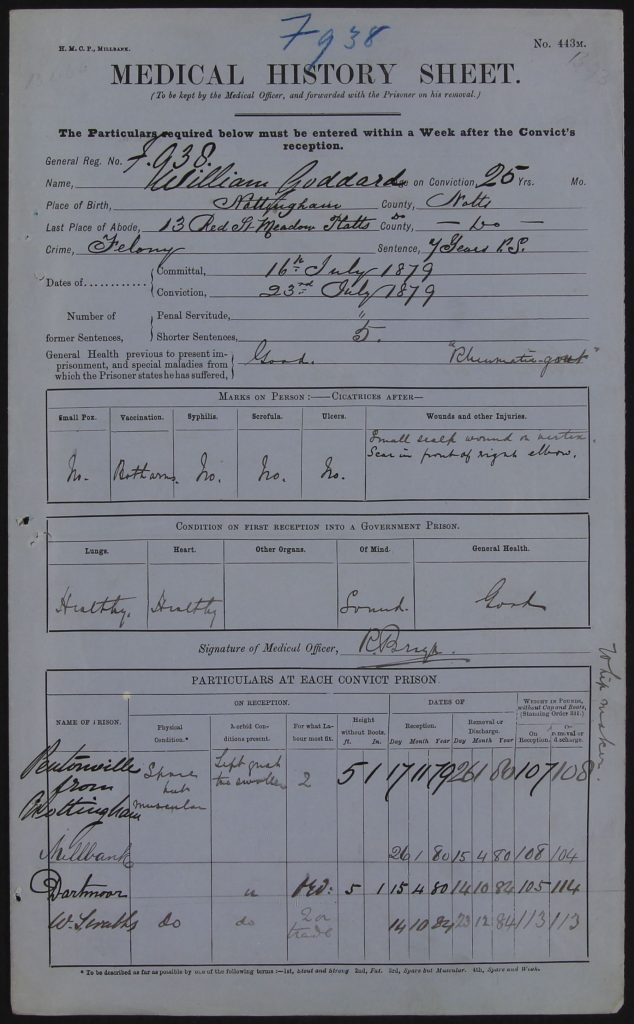 F938
H. M. C. P., MILLBANK.
No. 443M.
MEDICAL HISTORY SHEET.
(To be kept by the Medical Officer, and forwarded with the Prisoner on his removal.)
The Particulars required below must be entered within a Week after the Convict's
reception.
General Reg. No. F.938.
Name, William Goddard on Conviction, 25 Yrs. Mo.
Place of Birth, Nottingham County, Notts
Last Place of Abode, 13 Red St Meadow Platts County, — Do —
Crime, Felony Sentence, 7 Years P.S.
Dates of
Committal, 16th July 1879
Conviction, 23rd July 1879
Number of former Sentences,
Penal Servitude, "
Shorter Sentences, 5.
General Health previous to present im-
prisonment, and special maladies from
which the Prisoner states he has suffered,
Good. "Rheumatic-gout"
MARKS ON PERSON:—CICATRICES AFTER—
Small Pox. Vaccination. Syphilis. Scrofula. Ulcers. Wounds and other Injuries.
No. Both arms. No. No. No. Small scalp wound on vertex.
Scar in front of right elbow.
CONDITION ON FIRST RECEPTION INTO A GOVERNMENT PRISON.
Lungs. Heart. Other Organs. Of Mind. General Health.
Healthy. Healthy Sound. Good
Signature of Medical Officer,
Whip maker.
PARTICULARS AT EACH CONVICT PRISON.
NAME OF PRISON. ON RECEPTION. DATES OF WEIGHT IN POUNDS, without Cap and Boots, (Standing Order 321.)
Physical Condition.* Morbid Conditions present. For what Labour most fit. Height without Boots. ft. In. Reception. Day Month Year Removal or Discharge. Day Month Year On Reception. On removal or discharge.
Pentonville from Nottingham Spare but muscular Left great toe swollen 2 5 1 17 11 79 26 1 80 107 108
Millbank 26 1 80 15 4 80 108 104
Dartmoor " 5 1 15 4 80 14 10 84 105 114
W. Scrubbs do do 2 or trade 14 10 84 23 12 84 113 113
* To be described as far as possible by one of the following terms:—1st, Stout and Strong 2nd, Fat. 3rd, Spare but Muscular. 4th, Spare and Weak.